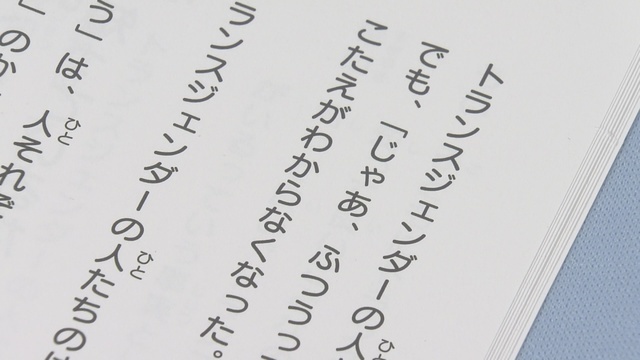 トランスジェンダーの人
でも、「じゃあ、ふつうって
こたえがわからなくなった。
ランスジェンダーの人たちの
う」は、人それぞ
」のか